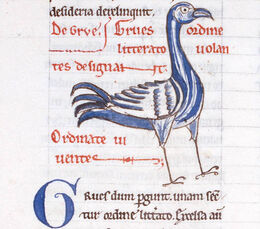 desideria derelinqunt.
De grue. Grues ordine
litterato uolan
tes designat
Ordinate ui
uente
Grues dum pergunt. unam sec
tur ordine litterato. Excelsa au